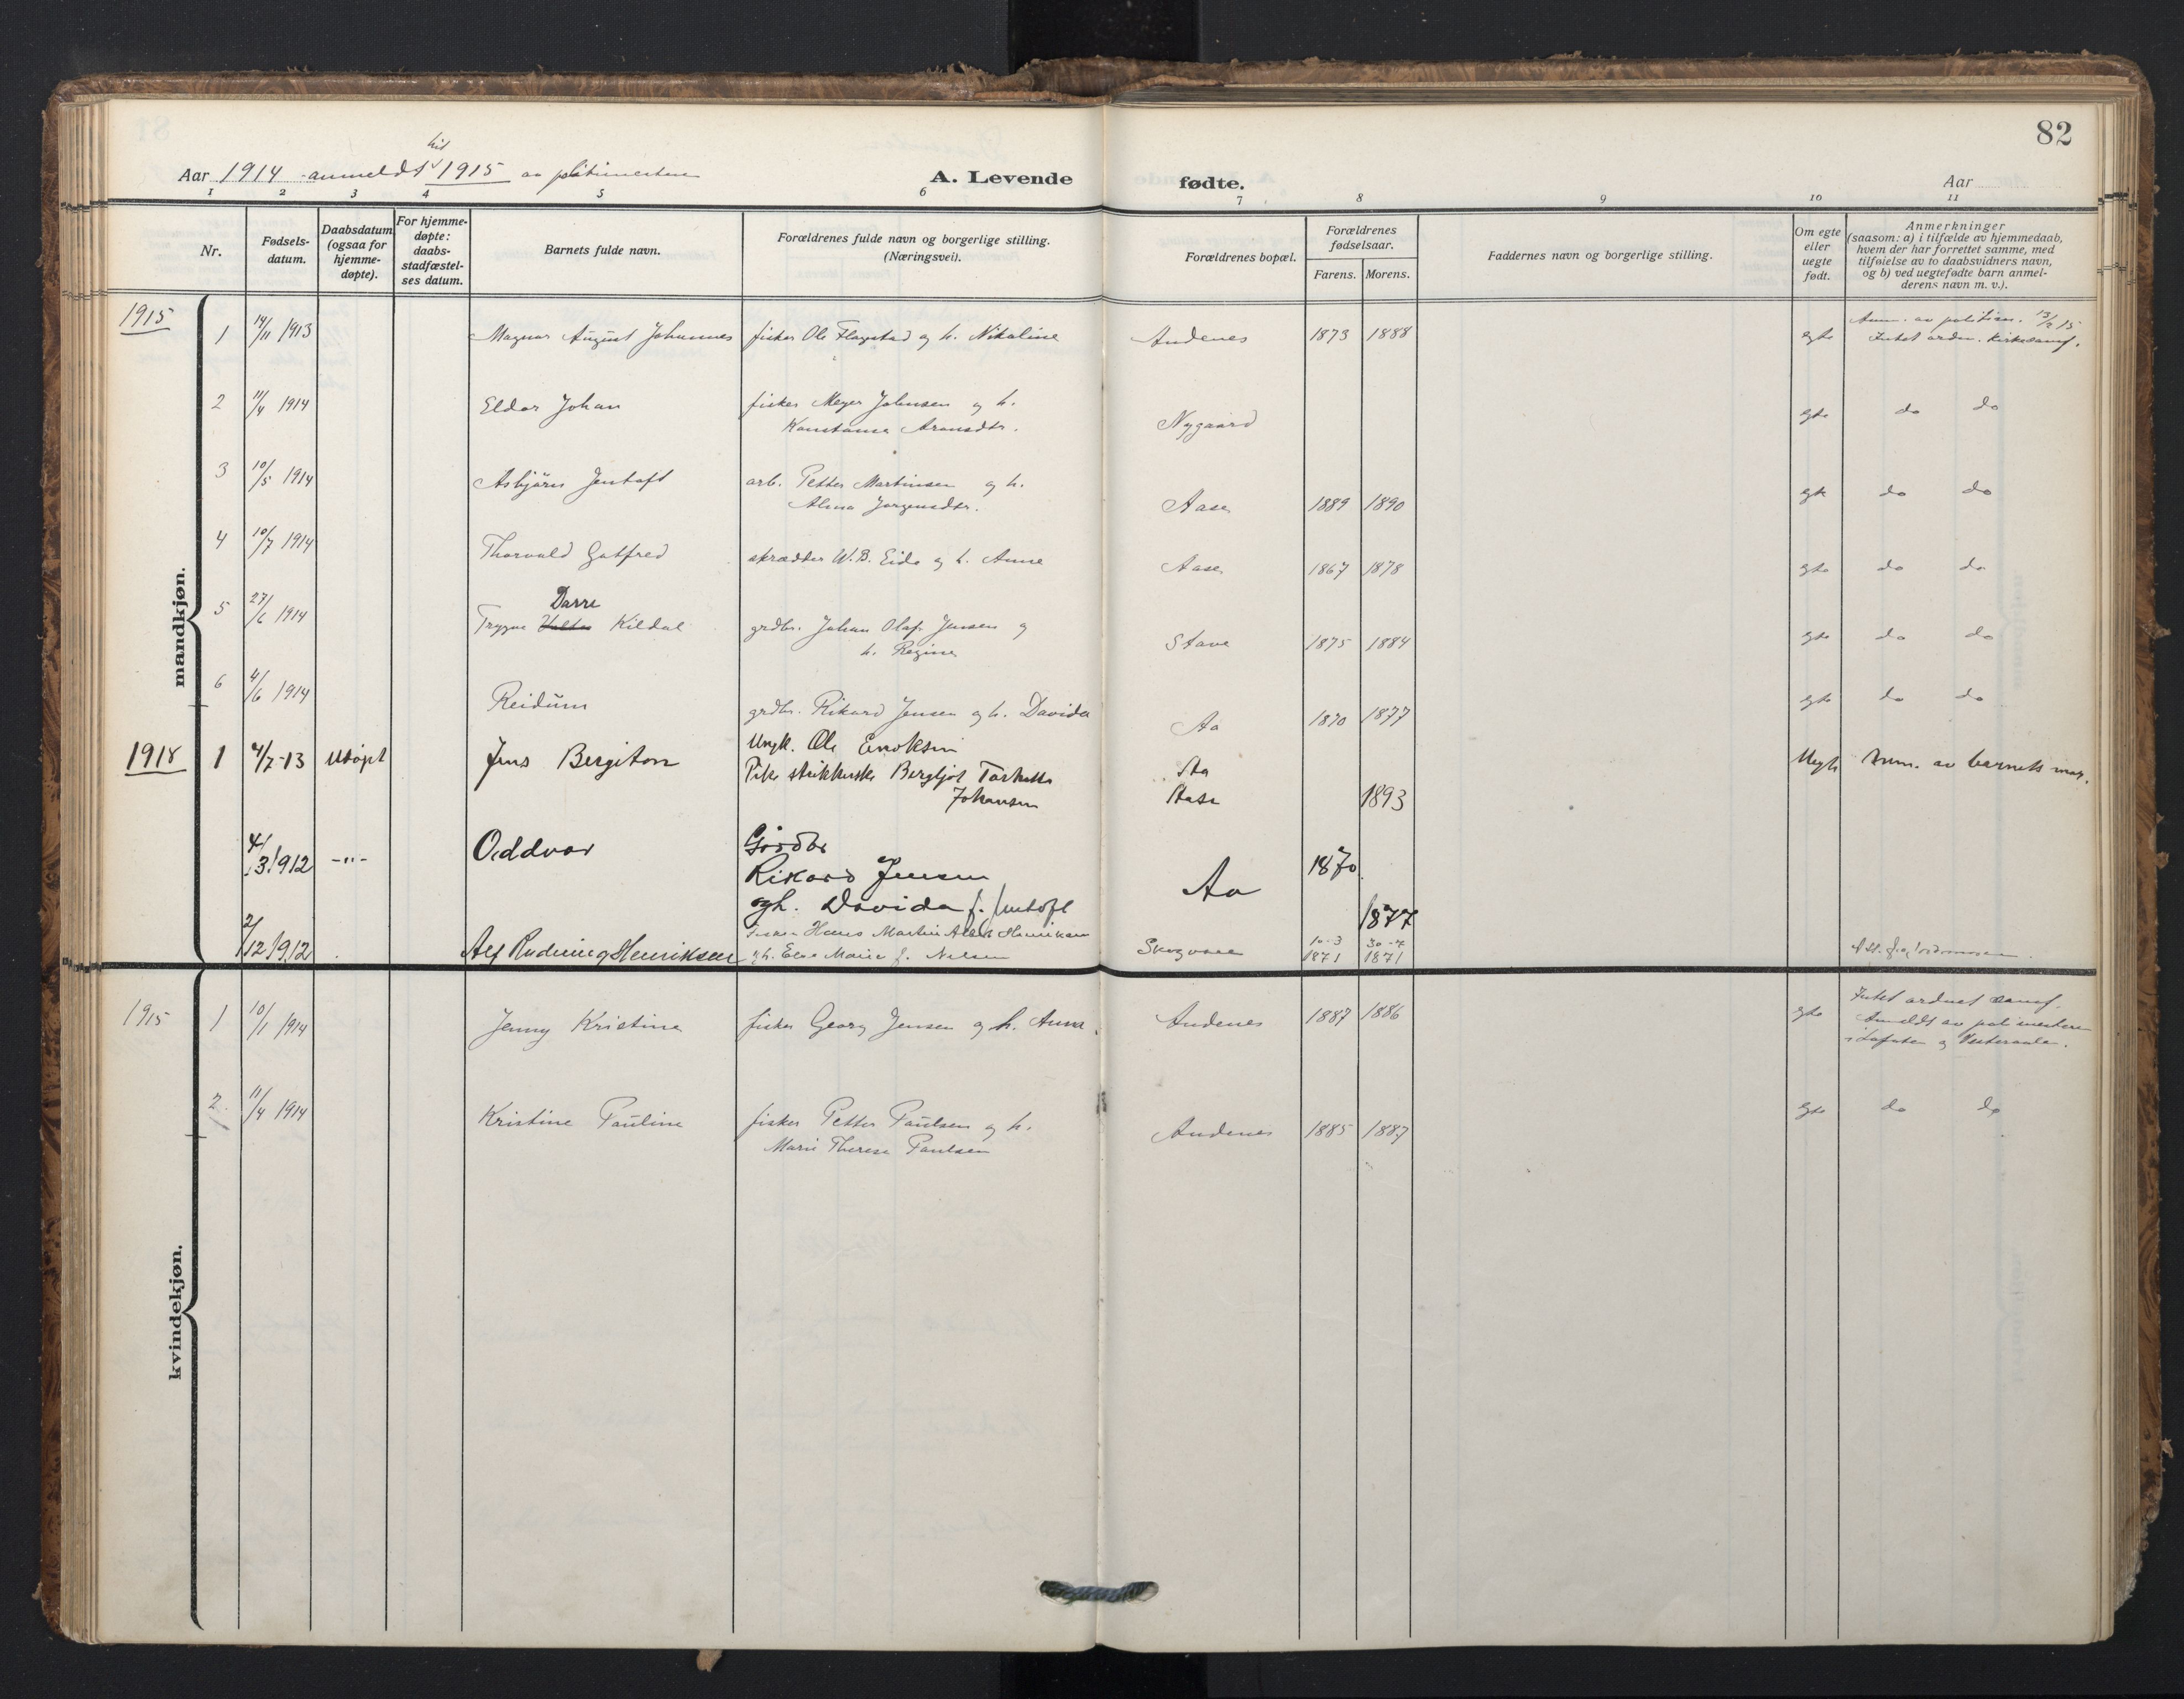 82
hit
Aar 1914 anmeldt 1915 av politimesteren A. Levende fødte. Aar
1 2 3 4 5 6 7 8 9 10 11
Nr.
Fødsels-
datum.
Daabsdatum
(ogsaa for
hjemme-
døpte).
For hjemme-
døpte:
daabs-
stadfæstel-
ses datum.
Barnets fulde navn.
Forældrenes fulde navn og borgerlige stilling.
(Næringsvei).
Forældrenes bopæl.
Forældrenes
fødselsaar.
Farens. Morens.
Faddernes navn og borgerlige stilling.
Om egte
eller
uegte
født.
Anmerkninger
(saasom: a) i tilfælde av hjemmedaab,
hvem der har forrettet samme, med
tilføielse av to daabsvidners navn,
og b) ved uegtefødte barn anmel-
derens navn m. v.).
mandkjøn.
1915
1 14/11 1913 Magnar August Johannes fisker Ole Flagstad og h. Nikoline Andenes 1873 1888 egte Anm. av politim. 13/2 15
Intet ordn. kirkesamf.
2 11/4 1914 Eldor Johan fisker Meyer Johnsen og h.
Konstanse Aronsdtr. Nygaard egte do do
3 10/5 1914 Asbjørn Jentoft arb. Petter Martinsen og h.
Alma Jørgensdtr. Aase 1889 1890 egte do do
4 10/7 1914 Thorvald Gotfred skrædder W.B. Eide og h. Anne Aase 1867 1878 egte do do
Darre
5 27/6 1914 Trygve Kildal grdbr. Johan Olaf Jensen og
h. Regine Stave 1875 1884 egte do do
6 4/6 1914 Reidun grdbr. Rikard Jensen og h. Davida Aa 1870 1877 egte do do
1918 1 4/7-13 Udøpt Jens Bergiton Ungk. Ole Enoksen
Pike strikkerske Bergljot Torhette
Johansen Aa
Aase 1893 Uegte Anm. av barnets mor.
4/3 1912 -"- Oddvar Gårdbr
Rikard Jensen
og h. Davida f. Jentoft Aa 1870
1877
2/12 1912 Alf Rudning Henriksen Fisker Hans Martin Albert Henriksen
og h. Else Marie f. Nilsen Skogvoll 10-3 1871 30-4 1871 Att. f. jordmoren.
kvindekjøn.
1915 1 10/1 1914 Jenny Kristine fisker Georg Jensen og h. Anna. Andenes 1887 1886 egte Intet ordnet samf.
Anmeldt av politimesteren
i Lofoten og Vesteraalen.
2. 11/4 1914 Kristine Pauline fisker Petter Paulsen og h.
Marie Therese Paulsen Andenes 1885 1887 egte do do